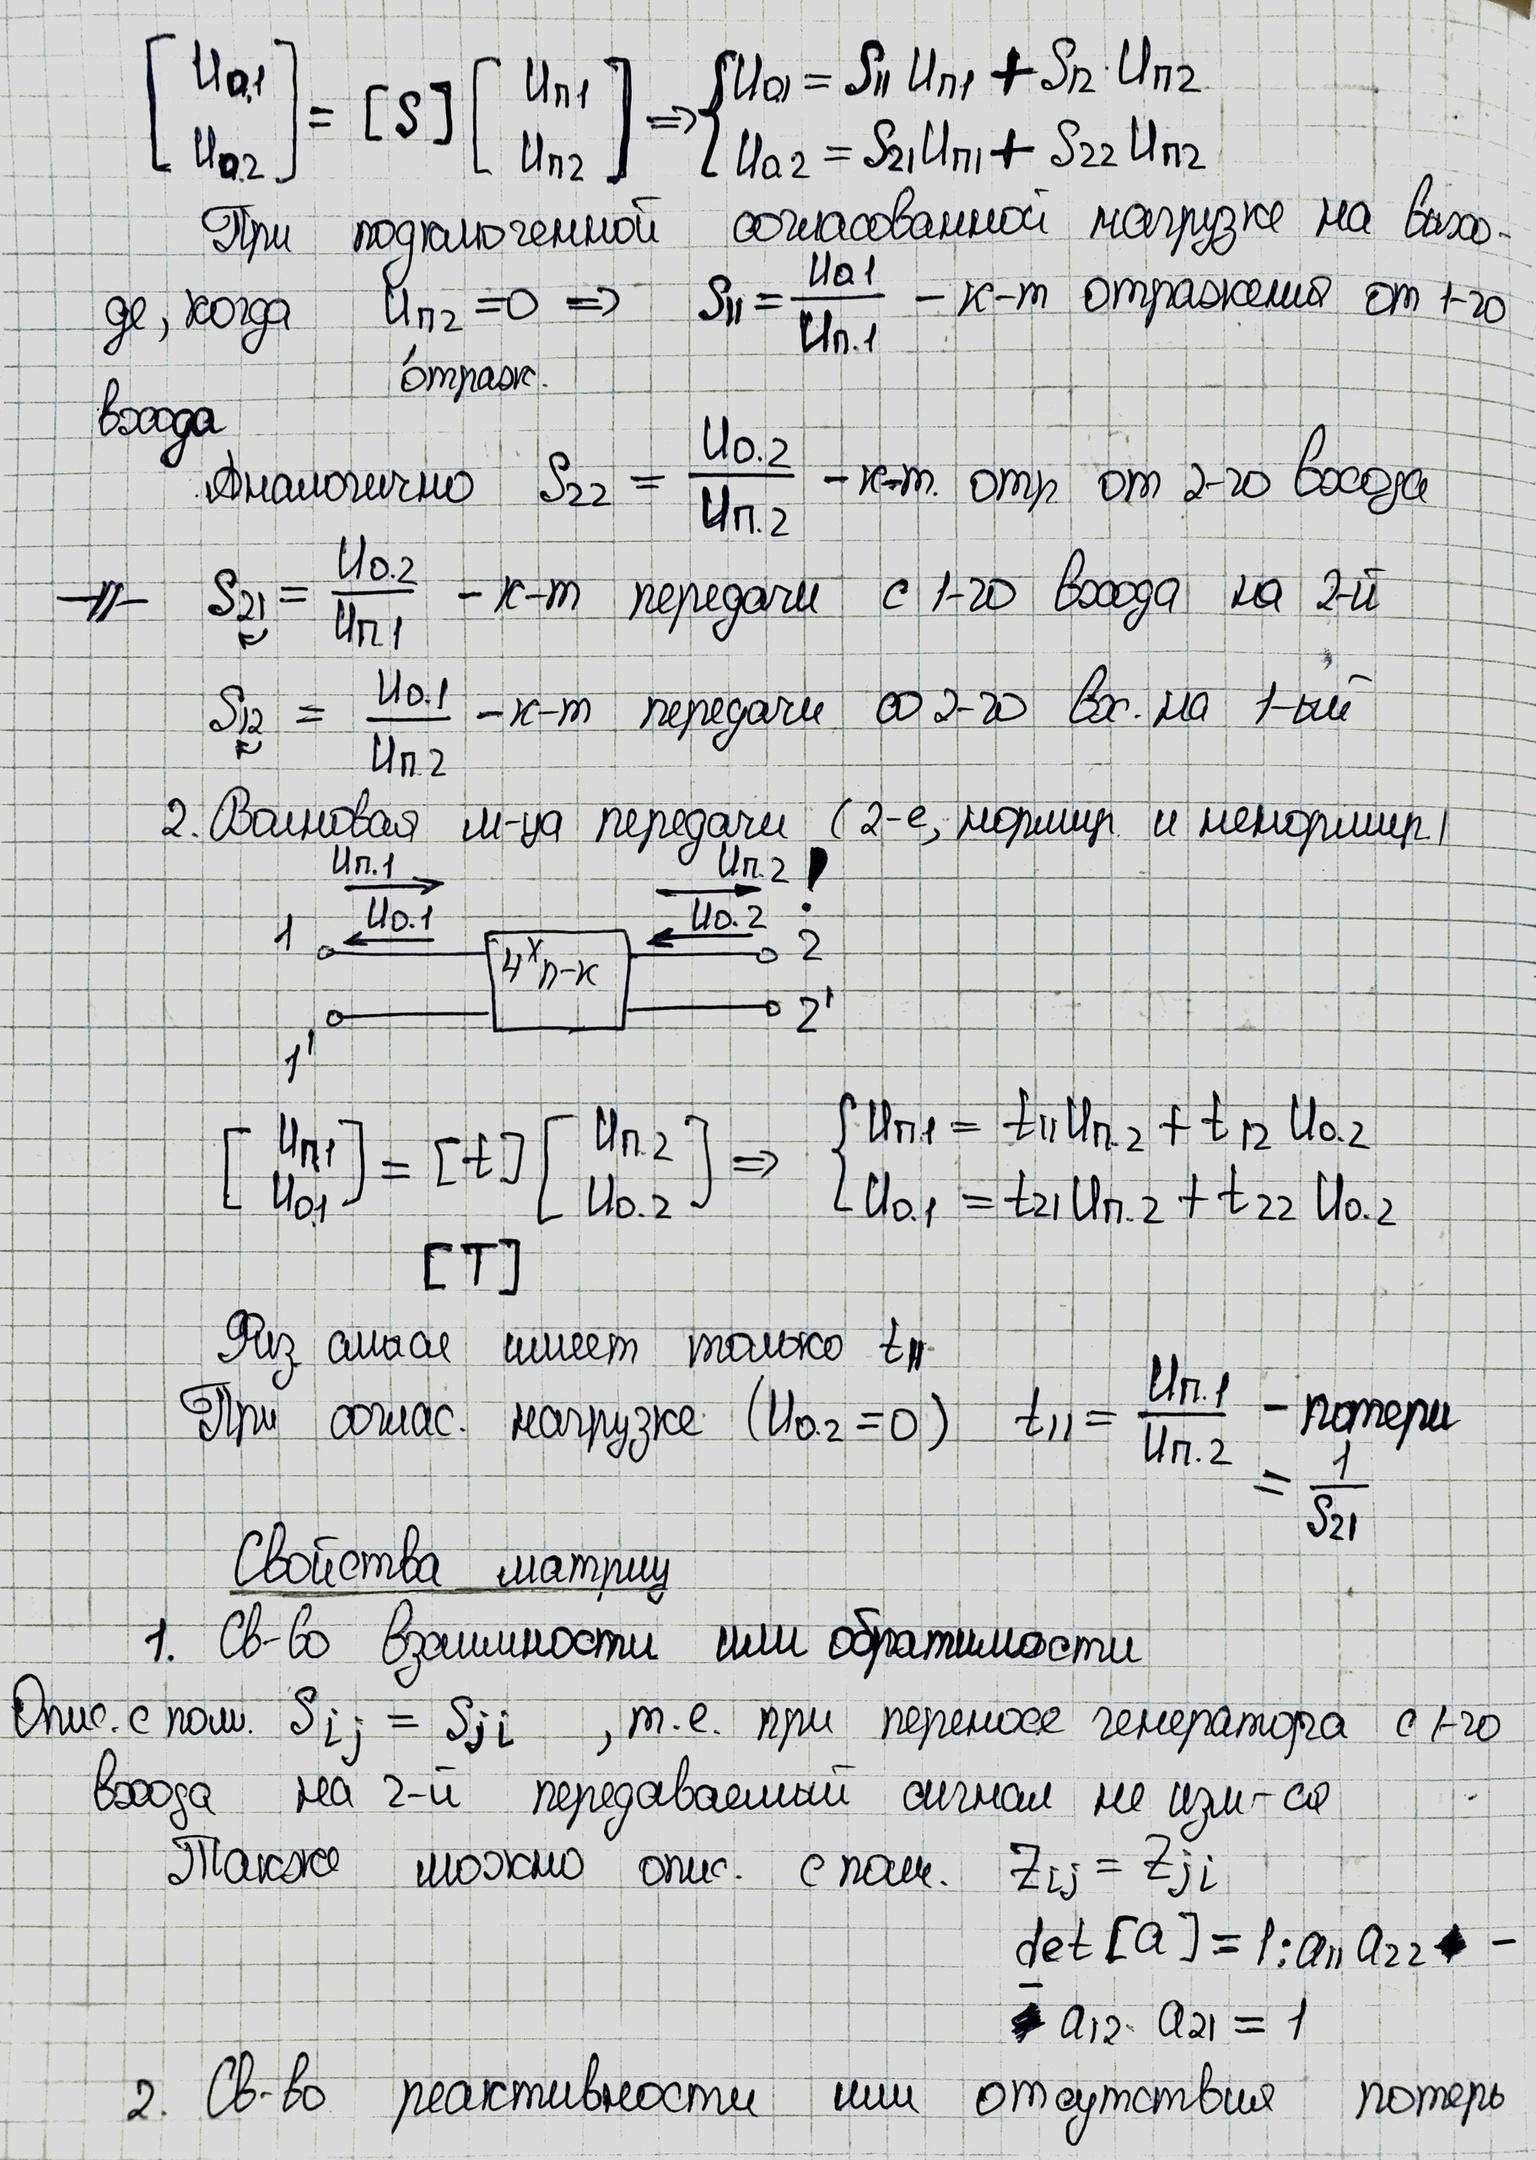 [Uо.1 Uо.2] = [S] [Uп1 Uп2] => { Uо1 = S11 Uп1 + S12 · Uп2
Uо2 = S21 Uп1 + S22 Uп2
При подключенной согласованной нагрузке на выхо-
де, когда Uп2 = 0 => S11 = Uо.1 / Uп.1 - к-т отражения от 1-го
отраж.
входа
Аналогично S22 = Uо.2 / Uп.2 - к-т. отр от 2-го входа
-//- S21 = Uо.2 / Uп.1 - к-т передачи с 1-го входа на 2-й
S12 = Uо.1 / Uп.2 - к-т передачи со 2-го вх. на 1-ый
2. Волновая м-ца передачи (2-е, нормир. и ненормир.)
Uп.1 Uп.2 !
Uо.1 Uо.2
1 4хп-к 2
1' 2'
[Uп.1 Uо.1] = [t] [Uп.2 Uо.2] => { Uп.1 = t11 Uп.2 + t12 Uо.2
Uо.1 = t21 Uп.2 + t22 Uо.2
[T]
Физ смысл имеет только t11
При соглас. нагрузке (Uо.2 = 0) t11 = Uп.1 / Uп.2 - потери
= 1 / S21
Свойства матриц
1. Св-во взаимности или обратимости
Опис. с пом. Sij = Sji , т.е. при переносе генератора с 1-го
входа на 2-й передаваемый сигнал не изм-ся
Также можно опис. с пом. Zij = Zji
det [a] = 1: a11 a22 -
- a12 · a21 = 1
2. Св-во реактивности или отсутствия потерь